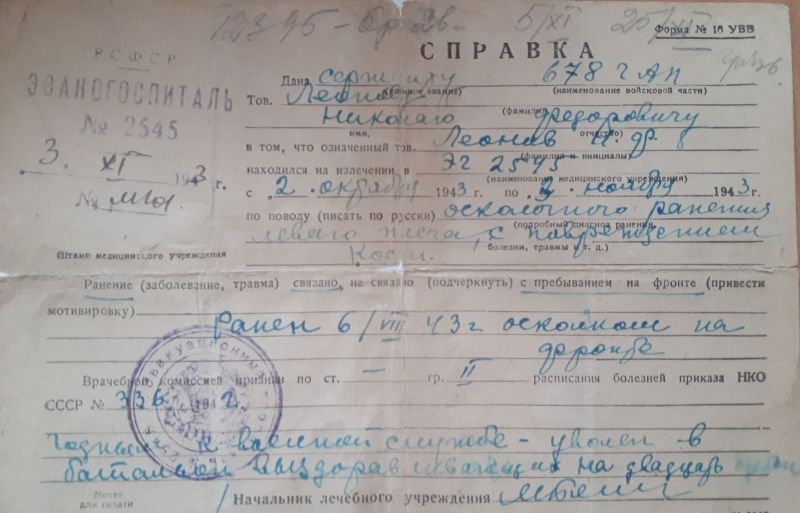 12395 - 5/XI 25/XI
Форма № 16 УВВ
РСФСР
ЭВАКОГОСПИТАЛЬ
№ 2545
3. XI 1943 г.
№
Штамп медицинского учреждения
СПРАВКА
Дана сержанту 678 ГАП
(воинское звание) (наименование войсковой части)
Тов. Леонову
(фамилия)
Николаю Федоровичу
имя, отчество)
в том, что означенный тов. Леонов Н. Ф.
(фамилия и инициалы)
находился на излечении в ЭГ 2545
(наименование медицинского учреждения)
с 2 октября 1943 г. по 3 ноября 1943 г.
по поводу (писать по русски) осколочного ранения
(подробный диагноз ранения,
левого плеча с повреждением
болезни, травмы и т. д.)
кости.
Ранение (заболевание, травма) связано, не связано (подчеркнуть) с пребыванием на фронте (привести
мотивировку)
Ранен 6/VIII 43 г осколком на
фронте
Врачебной комиссией признан по ст. — гр. II расписания болезней приказа НКО
СССР № 336 1942
Годный к военной службе - уволен в
батальон выздоравливающих на двадцать
Место
для печати
Начальник лечебного учреждения